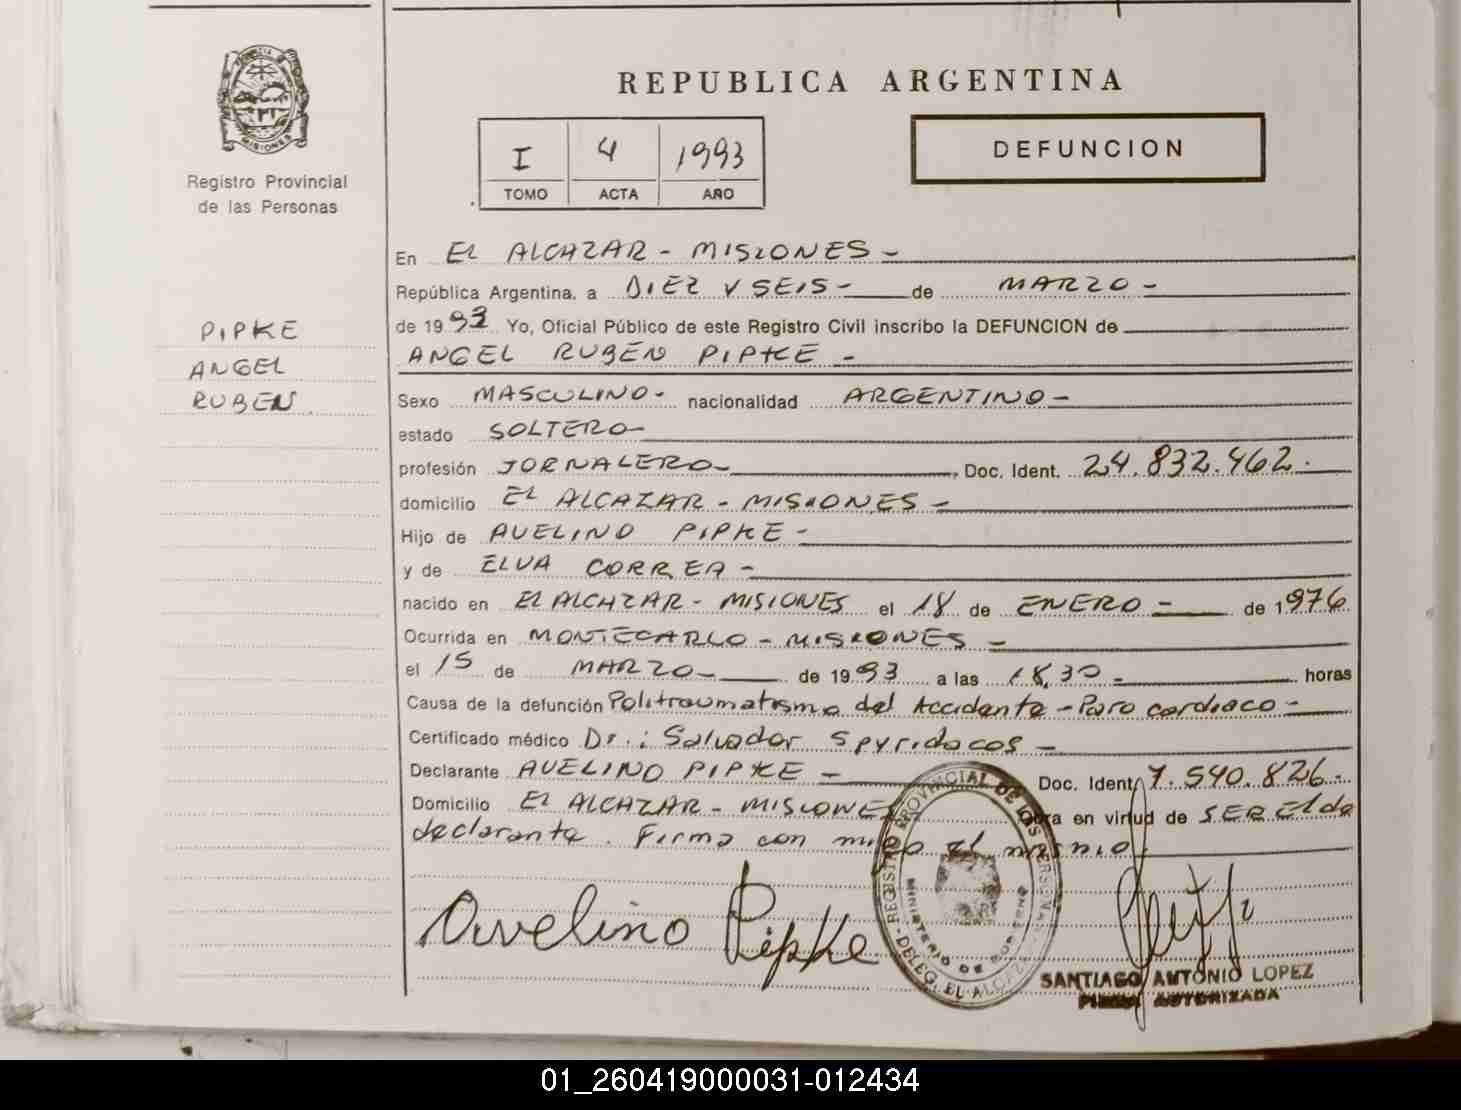 PROVINCIA DE
MISIONES
Registro Provincial
de las Personas
PIPKE
ANGEL
RUBEN
REPUBLICA ARGENTINA
I 4 1993
TOMO ACTA AÑO
DEFUNCION
En EL ALCAZAR - MISIONES -
República Argentina. a DIEZ Y SEIS - de MARZO -
de 1993 Yo, Oficial Público de este Registro Civil inscribo la DEFUNCION de
ANGEL RUBEN PIPKE -
Sexo MASCULINO - nacionalidad ARGENTINO -
estado SOLTERO -
profesión JORNALERO - , Doc. Ident. 24.832.462.
domicilio EL ALCAZAR - MISIONES -
Hijo de AVELINO PIPKE -
y de ELVA CORREA -
nacido en EL ALCAZAR - MISIONES el 18 de ENERO - de 1976
Ocurrida en MONTECARLO - MISIONES -
el 15 de MARZO - de 1993 a las 18,30 - horas
Causa de la defunción Politraumatismo del Accidente - Paro cardiaco -
Certificado médico Dr.: Salvador Spyridacos -
Declarante AVELINO PIPKE - Doc. Ident. 7.540.826 -
Domicilio EL ALCAZAR - MISIONES Obra en virtud de SER El de
declarante. Firma con migo el mismo
Avelino Pipke
REGISTRO PROVINCIAL DE LAS PERSONAS
MINISTERIO DE GOBIERNO
- DELEG. EL ALCAZAR
SANTIAGO ANTONIO LOPEZ
FIRMA AUTORIZADA
01_260419000031-012434